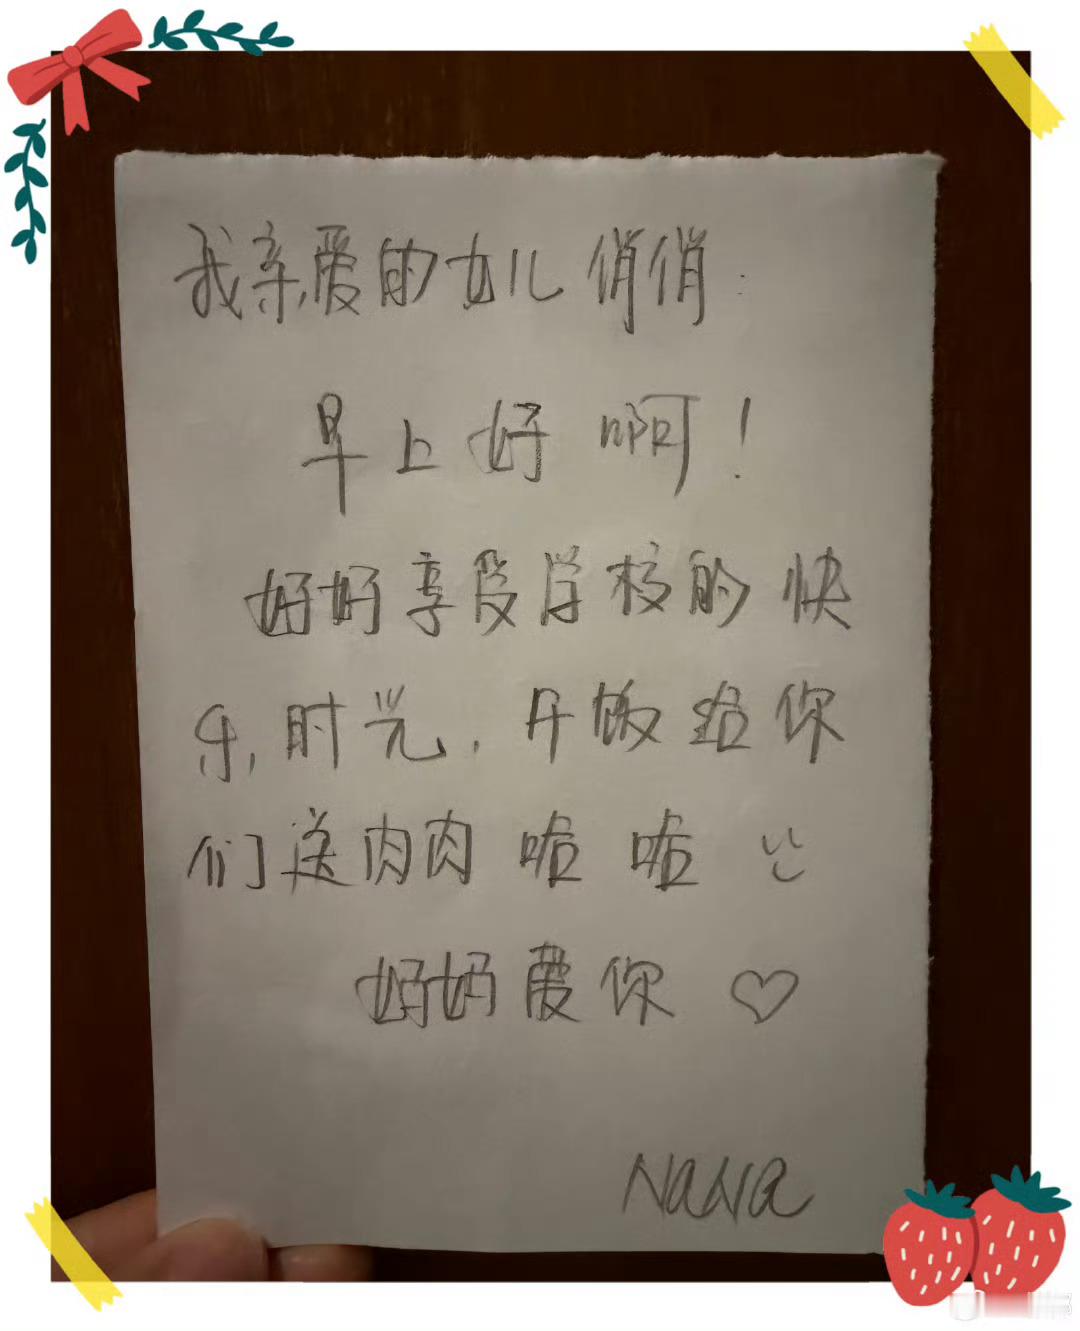 我亲爱的女儿俏俏:
早上好啊!
好好享受学校的快
乐时光,开饭给你
们送肉肉啦啦
妈妈爱你♡
NaNa